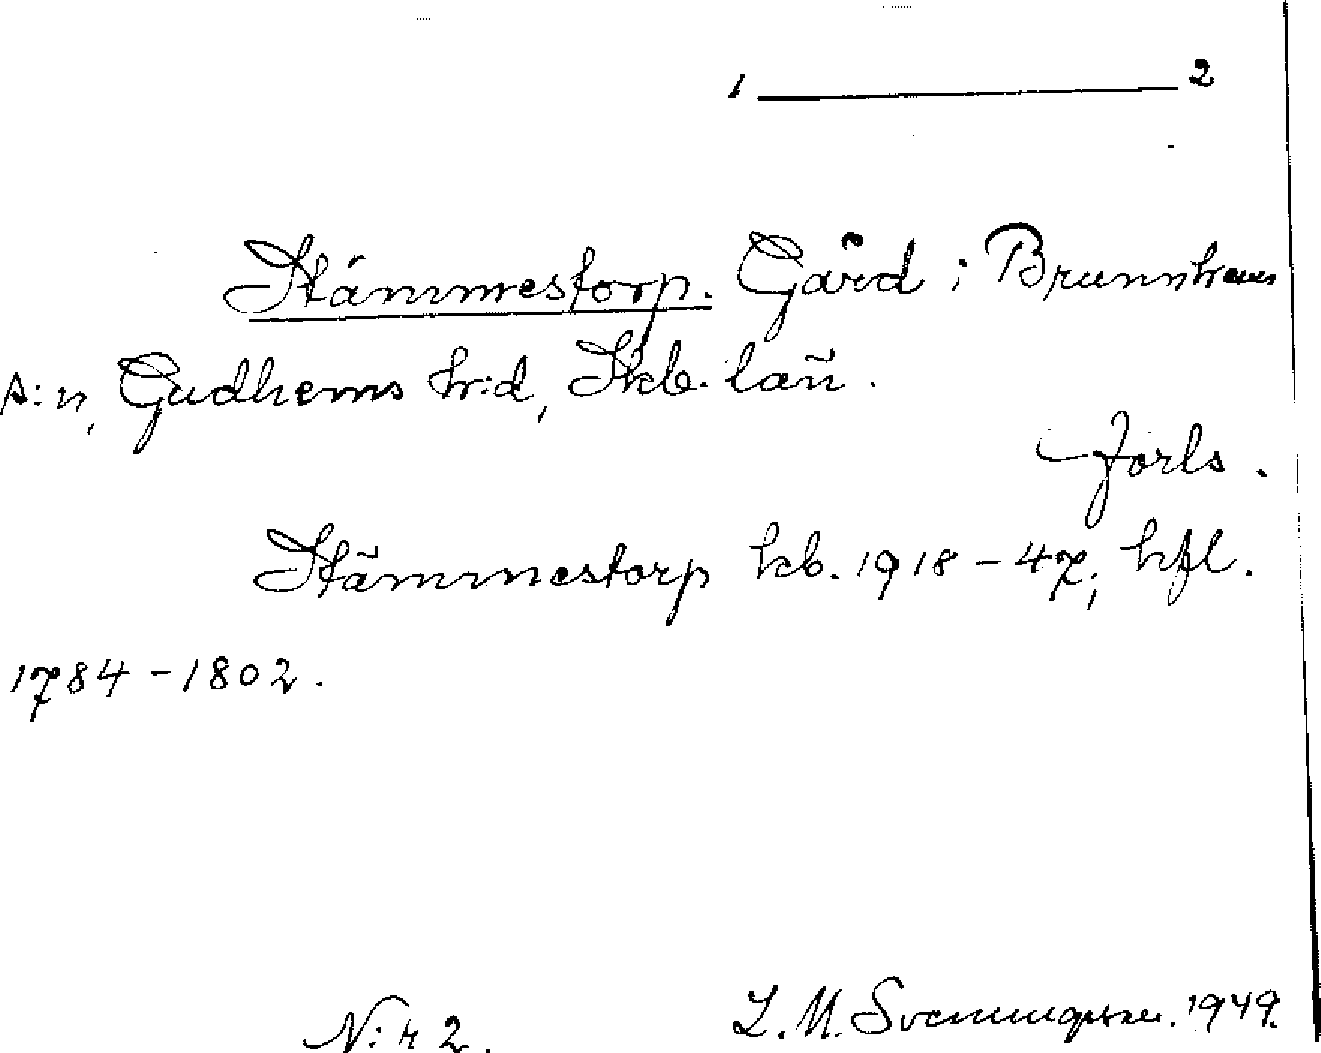 1 ________ 2
Stämmestorp. Gård i Brunnhems
s:n, Gudhems hr:d, Skb. län.
Jorls.
Stämmestorp kb. 1918-47, hfl.
1784-1802.
N:r 2. L. M. Svenungsson. 1949.